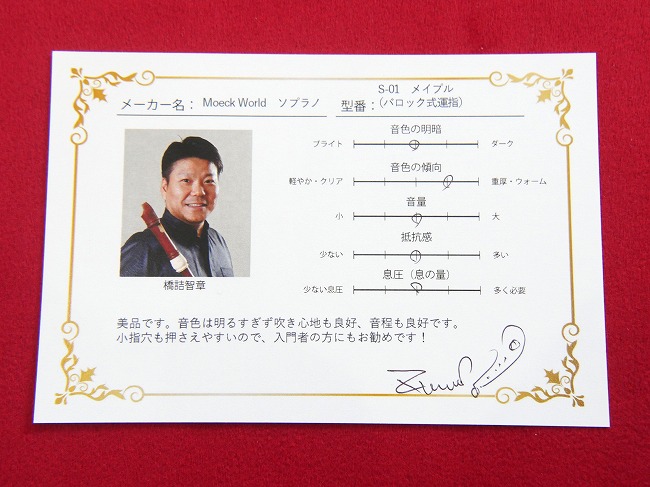 メーカー名： Moeck World ソプラノ 型番： S-01 メイプル
(バロック式運指)
音色の明暗
ブライト ダーク
音色の傾向
軽やか・クリア 重厚・ウォーム
音量
小 大
抵抗感
少ない 多い
息圧（息の量）
少ない息圧 多く必要
橋詰智章
美品です。音色は明るすぎず吹き心地も良好、音程も良好です。
小指穴も押さえやすいので、入門者の方にもお勧めです！